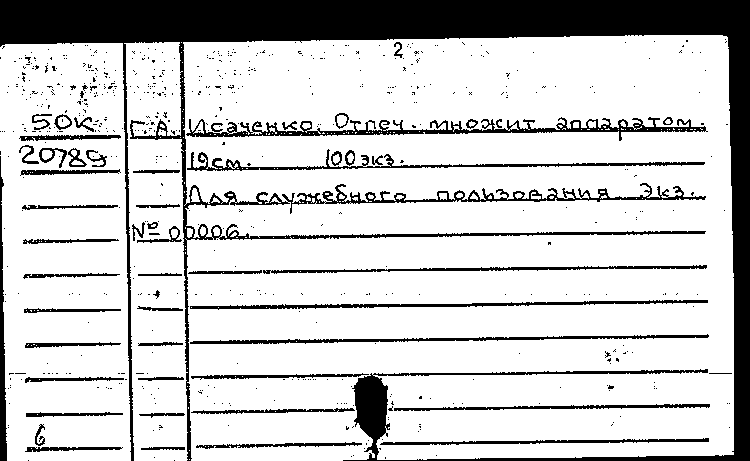 2
50К Г.А. Исаченко. Отпеч. множит аппаратом.
20789 19см. 100экз.
Для служебного пользования Экз.
№ 00006.
6